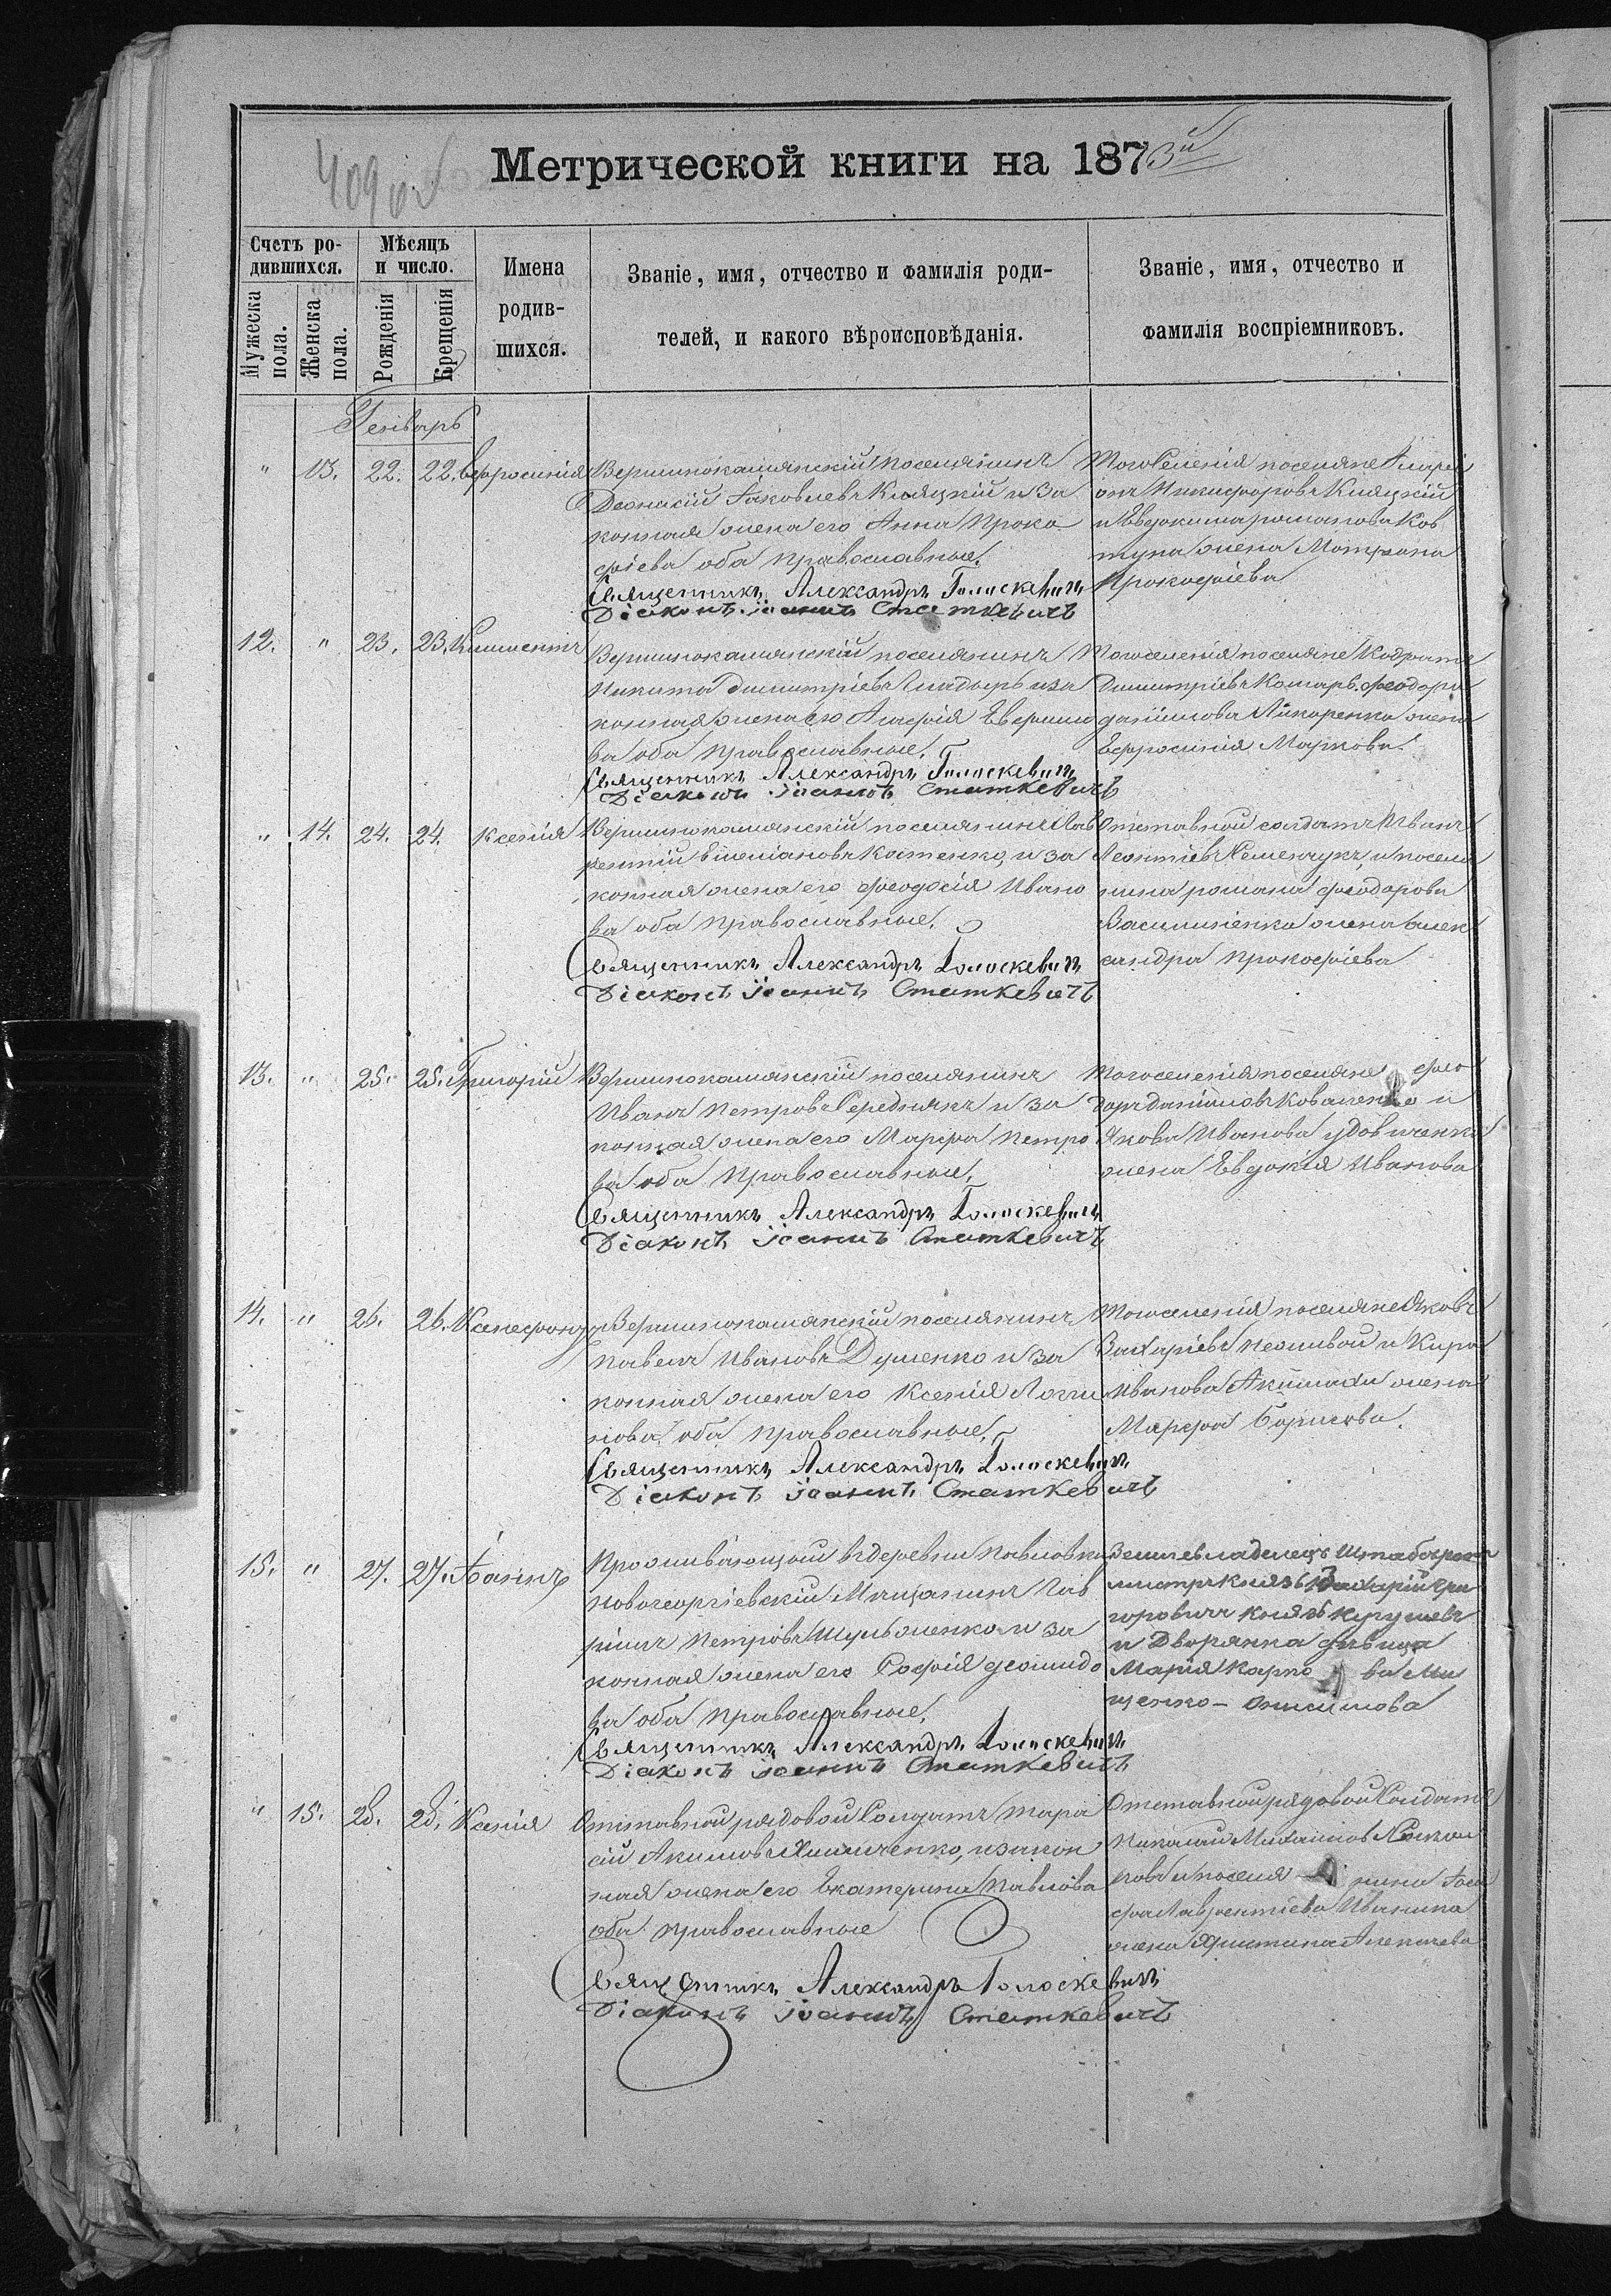 409 об
Метрической книги на 1873й
Счетъ ро-
дившихся.
Мѣсяцъ
и число.
Мужеска
пола.
Женска
пола.
Рожденія
Крещенія
Имена
родив-
шихся.
Званіе, имя, отчество и фамилія роди-
телей, и какого вѣроисповѣданія.
Званіе, имя, отчество и
фамилія воспріемниковъ.
Генварь
" 13. 22. 22. Евфросинія
Вершинокамянскій поселянинъ
Іаковлевъ Княцкій и за
конная жена его Анна Проко
фіева оба православные.
Священникъ Александръ Голоскевичъ
Діаконъ Іоаннъ Статкевичъ
Тогоселенія поселяне
Никифоровъ Княцкій
и Евдокима романова Ков
туна жена Матрона
Прокофіева
12. " 23. 23. Климентъ
Вершинокамянскій поселянинъ
Никита Димитріевъ Гладырь и за
конная жена его Агафія
ва оба православные.
Священникъ Александръ Голоскевичъ
Діаконъ Іоаннъ Статкевичъ
Тогоселенія поселяне Кодратъ
Димитріевъ Комаръ. феодора
даніилова жена
Евфросинія Маркова.
" 14. 24. 24. Ксенія
Вершинокамянскій поселянинъ Лав
рентій Емеліановъ Костенко, и за
конная жена его феодосія Ивано
ва оба православные.
Священникъ Александръ Голоскевичъ
Діаконъ Іоаннъ Статкевичъ
Отставной солдатъ Иванъ
Леонтіевъ и поселя
нина романа феодорова
Василиненка жена Алек
сандра Прокофіева
13. " 25. 25. Григорій
Вершинокамянскій поселянинъ
Иванъ Петровъ Середнякъ и за
конная жена его Марфа Петро
ва оба православные.
Священникъ Александръ Голоскевичъ
Діаконъ Іоаннъ Статкевичъ
Тогоселенія поселяне фео
доръ даніиловъ Коваленко и
Якова Иванова Удовиченка
жена Евдокія Иванова
14. " 26. 26. Ксенефонтъ
Вершинокамянскій поселянинъ
Павелъ Ивановъ Душенко и за
конная жена его Ксенія Логги
нова, оба православные.
Священникъ Александръ Голоскевичъ
Діаконъ Іоаннъ Статкевичъ
Тогоселенія поселяне Яковъ
Захаріевъ Неживой и Кира
Иванова жена
Марфа Борисова.
15. " 27. 27. Іоаннъ
Проживающій въ деревни Павловки
Новогеоргіевскій Мещанинъ Гав
ріилъ Петровъ Шульженко и за
конная жена его Софія
ва оба православные.
Священникъ Александръ Голоскевичъ
Діаконъ Іоаннъ Статкевичъ
Землевладелецъ Штабъ рот
мистръ Князь Захарій Гри
горовичъ Князь
и Дворянка дѣвица
Марія Карпо ва Ми
щенко – Онисимова
" 15. 28. 28. Ксенія
Отставной рядовой Солдатъ Тара
сій Акимовъ Климченко, и закон
ная жена его Екатерина Павлова
оба православные
Священникъ Александръ Голоскевичъ
Діаконъ Іоаннъ Статкевичъ
Отставной рядовой Солдатъ
Николай Михаиловъ
ковъ и поселя нина Іоси
фа Лаврентіева Иванина
жена Христина Алексіева